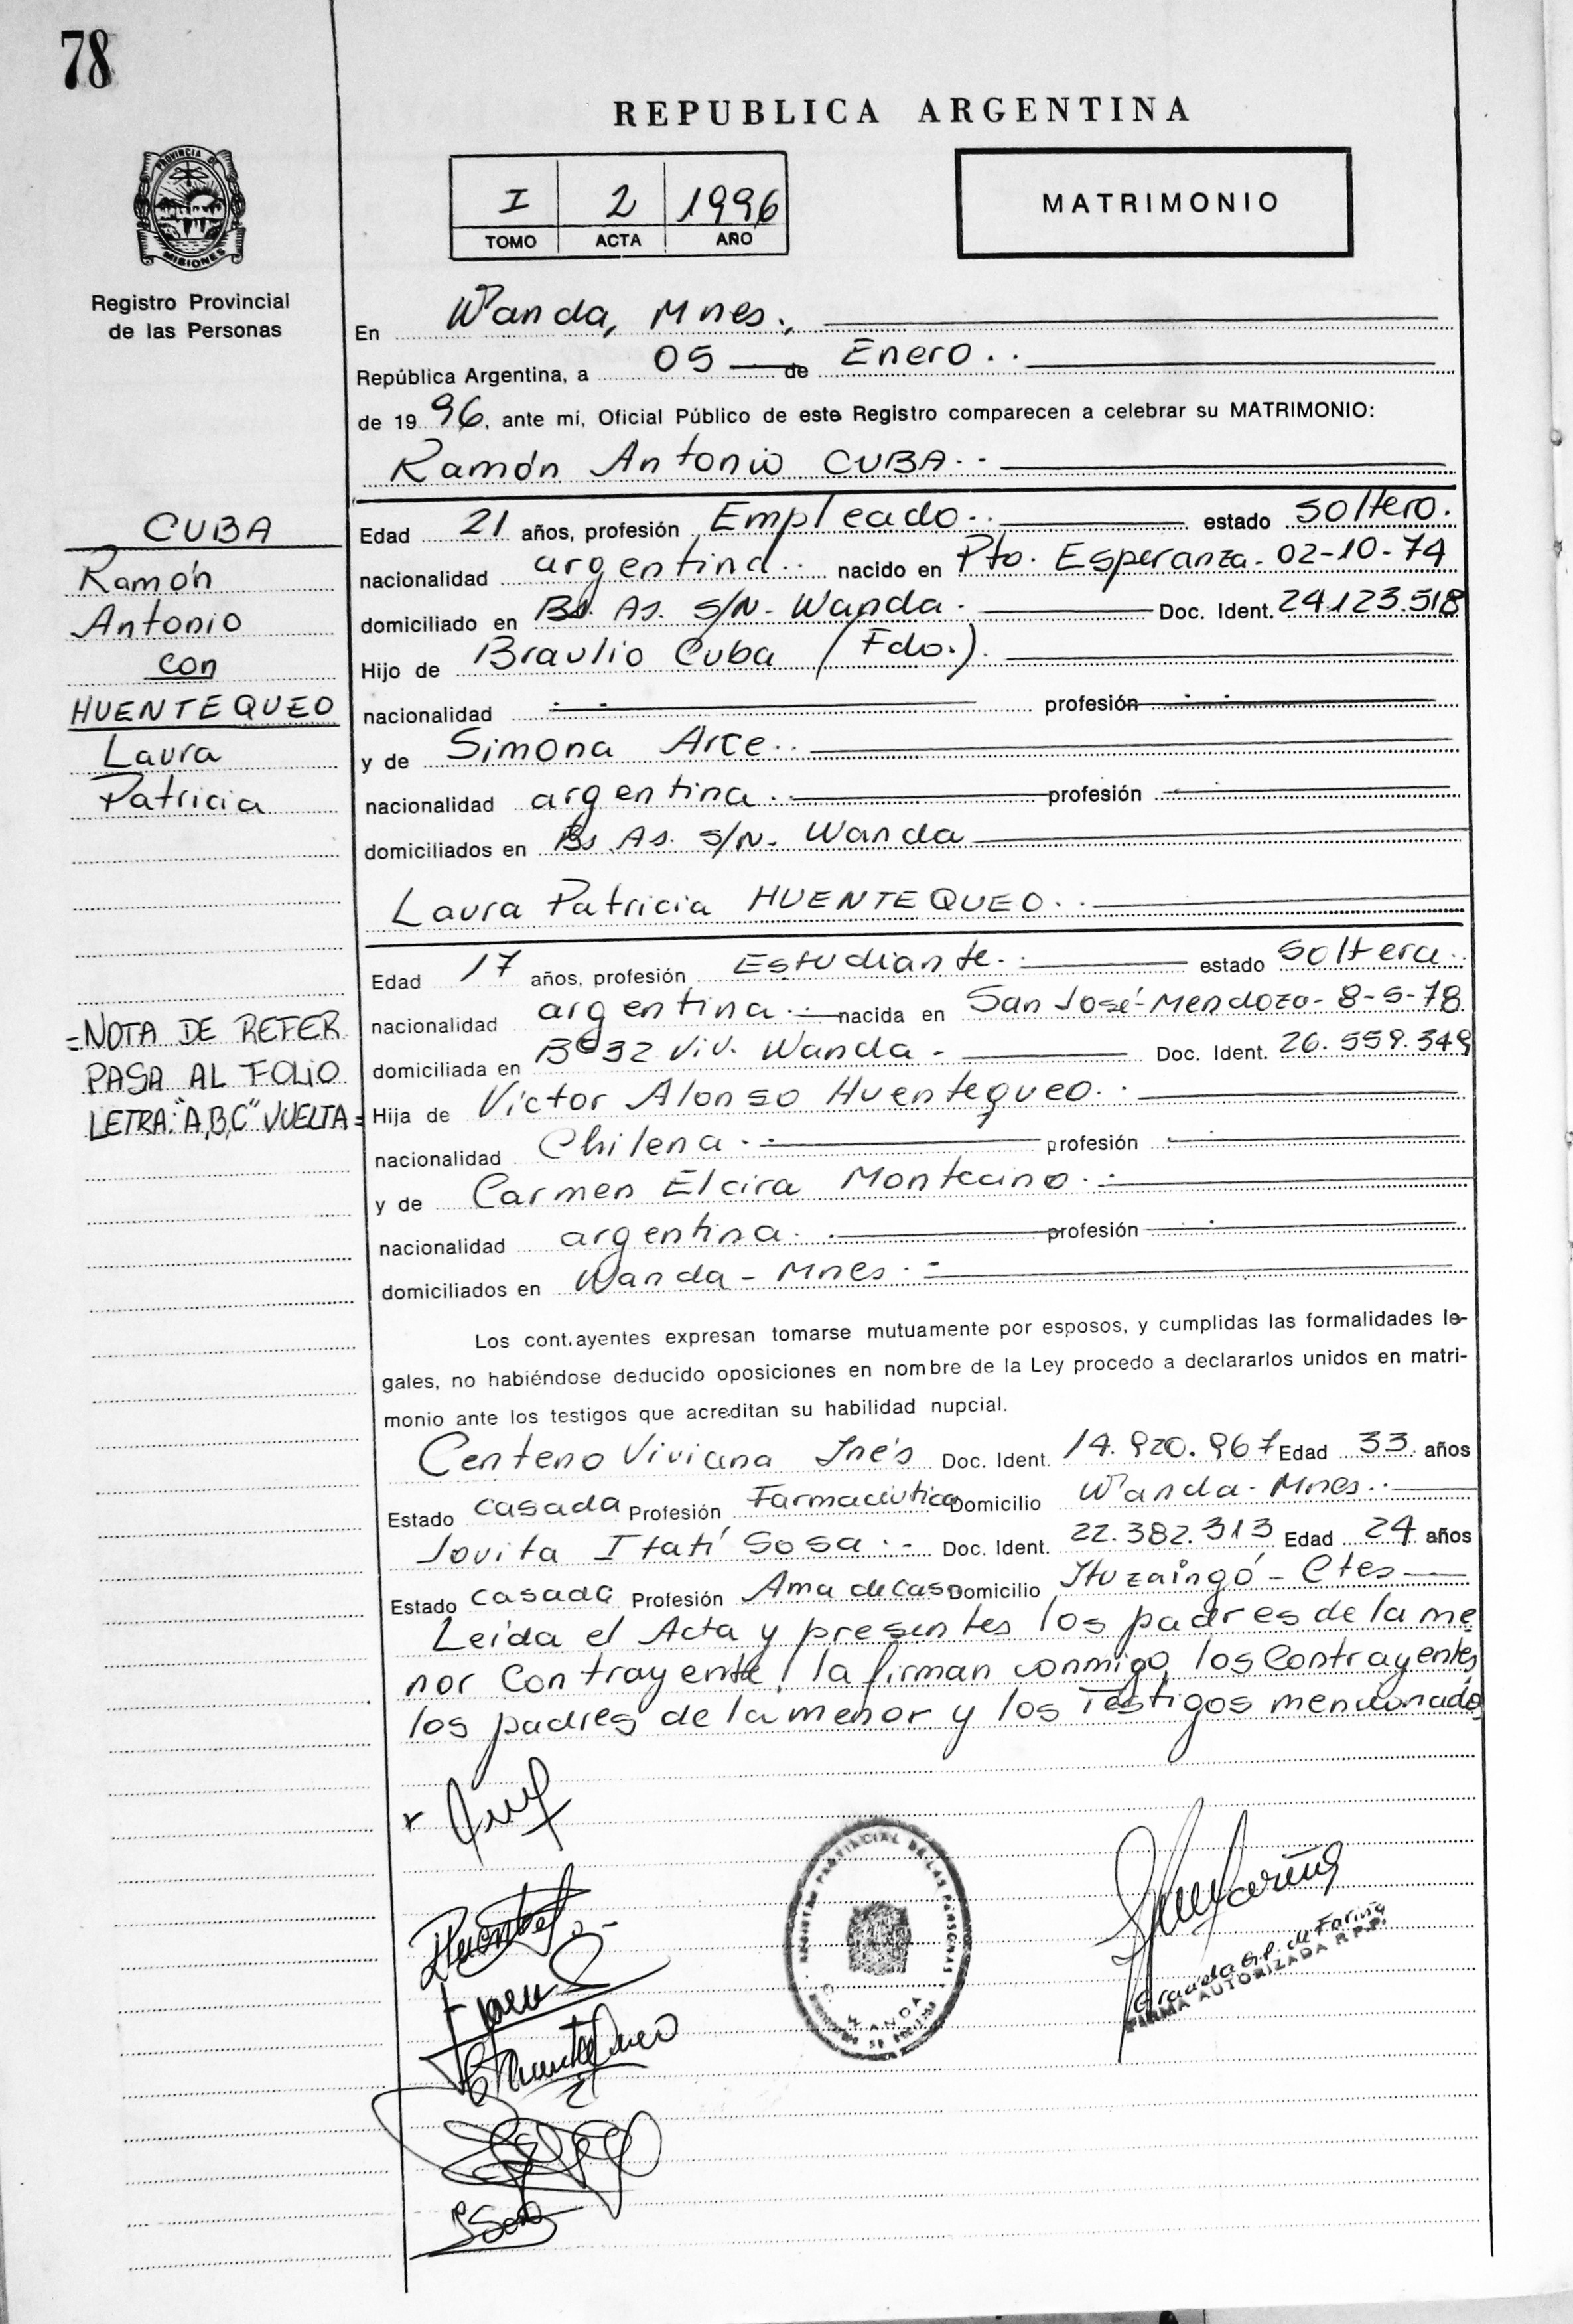 78
REPUBLICA ARGENTINA
PROVINCIA DE
MISIONES
Registro Provincial
de las Personas
I 2 1996
TOMO ACTA AÑO
MATRIMONIO
En Wanda, Mnes.
República Argentina, a 05 de Enero.
de 1996, ante mí, Oficial Público de este Registro comparecen a celebrar su MATRIMONIO:
Ramón Antonio CUBA.
Edad 21 años, profesión Empleado. estado soltero.
nacionalidad argentina. nacido en Pto. Esperanza - 02-10-74
domiciliado en Bs. As. s/N - Wanda. Doc. Ident. 24.123.518
Hijo de Braulio Cuba (Fdo.).
nacionalidad profesión
y de Simona Arce.
nacionalidad argentina. profesión
domiciliados en Bs As. s/N. Wanda
Laura Patricia HUENTEQUEO.
Edad 17 años, profesión Estudiante. estado soltera.
nacionalidad argentina. nacida en San José - Mendoza - 8-5-78
domiciliada en B° 32 Viv. Wanda - Doc. Ident. 26.559.349
Hija de Victor Alonso Huentequeo.
nacionalidad Chilena. profesión
y de Carmen Elcira Montecino.
nacionalidad argentina. profesión
domiciliados en Wanda - Mnes.
Los contrayentes expresan tomarse mutuamente por esposos, y cumplidas las formalidades le-
gales, no habiéndose deducido oposiciones en nombre de la Ley procedo a declararlos unidos en matri-
monio ante los testigos que acreditan su habilidad nupcial.
Centeno Viviana Inés Doc. Ident. 14.920.967 Edad 33 años
Estado casada Profesión Farmacéutica Domicilio Wanda - Mnes.
Jovita Itatí Sosa. Doc. Ident. 22.382.313 Edad 24 años
Estado casada Profesión Ama de casa Domicilio Ituzaingó - Ctes
Leída el Acta y presentes los padres de la me
nor contrayente, la firman conmigo, los contrayentes,
los padres de la menor y los Testigos mencionados
CUBA
Ramón
Antonio
con
HUENTEQUEO
Laura
Patricia
=NOTA DE REFER
PASA AL FOLIO
LETRA: "A,B,C" VUELTA=
REGISTRO PROVINCIAL DE LAS PERSONAS
WANDA
Graciela G.P. de Fariña
FIRMA AUTORIZADA R.P.P.